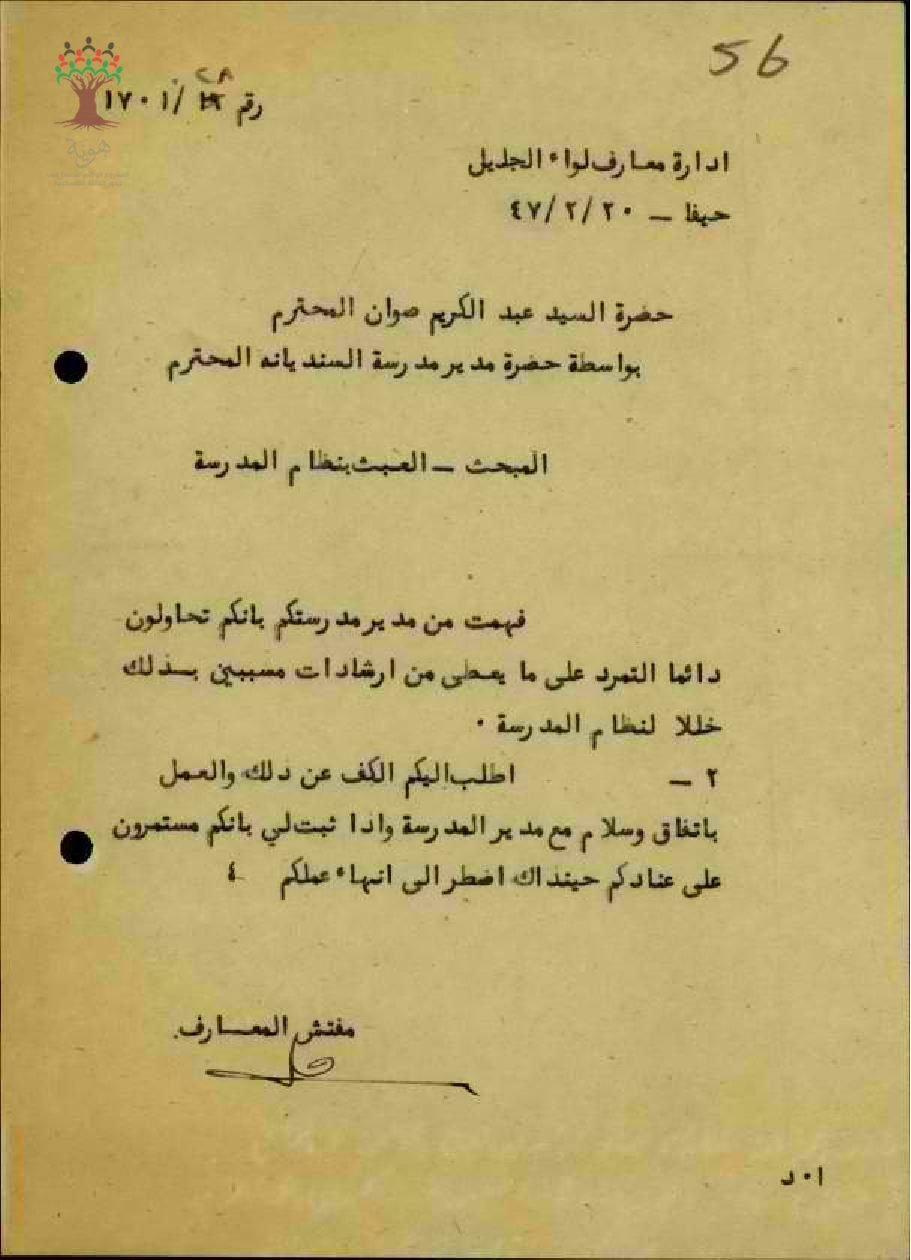 56
هوية
رقم ٢٨ /١٧٠١
ادارة معارف لواء الجليل
حيفا – ٤٧/٢/٢٠
حضرة السيد عبد الكريم صوان المحترم
بواسطة حضرة مدير مدرسة السنديانه المحترم
المبحث – العبث بنظام المدرسة
فهمت من مدير مدرستكم بانكم تحاولون
دائما التمرد على ما يعطى من ارشادات مسببين بذلك
خللا لنظام المدرسة ٠
٢ – اطلب اليكم الكف عن دلك والعمل
باتفاق وسلام مع مدير المدرسة وادا ثبت لي بانكم مستمرون
على عنادكم حينداك اضطر الى انهاء عملكم
مفتش المعارف.
ا٠د